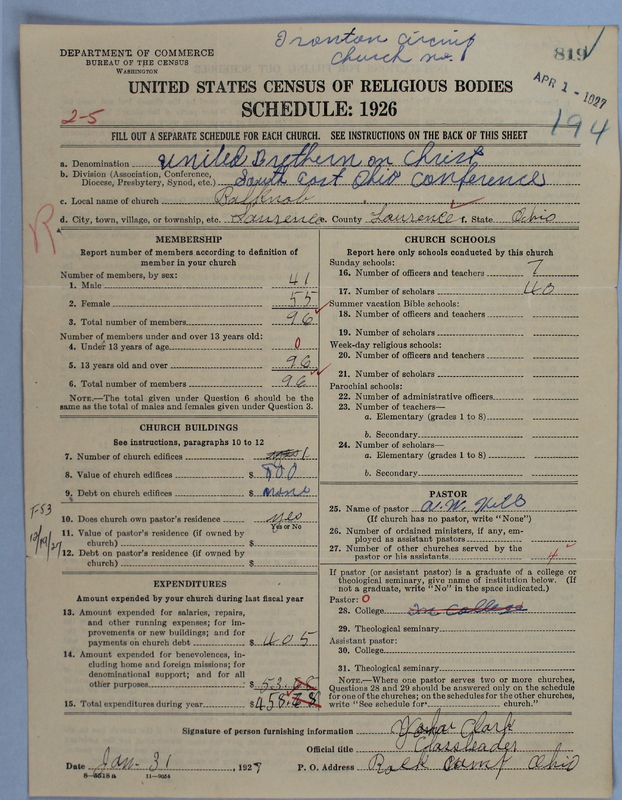 Ironton Circuit
Church no. 1
819
DEPARTMENT OF COMMERCE
BUREAU OF THE CENSUS
WASHINGTON
APR 1 - 1927
UNITED STATES CENSUS OF RELIGIOUS BODIES
SCHEDULE: 1926
2-5
194
FILL OUT A SEPARATE SCHEDULE FOR EACH CHURCH. SEE INSTRUCTIONS ON THE BACK OF THIS SHEET
a. Denomination United Brethern on Christ
b. Division (Association, Conference, Diocese, Presbytery, Synod, etc.) South East Ohio Conference
c. Local name of church
d. City, town, village, or township, etc. Laurence e. County Laurence f. State Ohio
R
MEMBERSHIP
Report number of members according to definition of
member in your church
Number of members, by sex:
1. Male 41
2. Female 55
3. Total number of members 96
Number of members under and over 13 years old:
4. Under 13 years of age 0
5. 13 years old and over 96
6. Total number of members 96
NOTE.—The total given under Question 6 should be the
same as the total of males and females given under Question 3.
CHURCH BUILDINGS
See instructions, paragraphs 10 to 12
7. Number of church edifices 1
8. Value of church edifices $ 800
9. Debt on church edifices $ none
10. Does church own pastor's residence? yes
Yes or No
11. Value of pastor's residence (if owned by
church) $
12. Debt on pastor's residence (if owned by
church) $
EXPENDITURES
Amount expended by your church during last fiscal year
13. Amount expended for salaries, repairs,
and other running expenses; for im-
provements or new buildings; and for
payments on church debt $ 405
14. Amount expended for benevolences, in-
cluding home and foreign missions; for
denominational support; and for all
other purposes $ 53.68
15. Total expenditures during year $ 458.68
CHURCH SCHOOLS
Report here only schools conducted by this church
Sunday schools:
16. Number of officers and teachers 7
17. Number of scholars 40
Summer vacation Bible schools:
18. Number of officers and teachers
19. Number of scholars
Week-day religious schools:
20. Number of officers and teachers
21. Number of scholars
Parochial schools:
22. Number of administrative officers
23. Number of teachers—
a. Elementary (grades 1 to 8)
b. Secondary
24. Number of scholars—
a. Elementary (grades 1 to 8)
b. Secondary
PASTOR
25. Name of pastor A. W.
(If church has no pastor, write "None")
26. Number of ordained ministers, if any, em-
ployed as assistant pastors
27. Number of other churches served by the
pastor or his assistants 4
If pastor (or assistant pastor) is a graduate of a college or
theological seminary, give name of institution below. (If
not a graduate, write "No" in the space indicated.)
Pastor: 0
28. College in College
29. Theological seminary
Assistant pastor:
30. College
31. Theological seminary
NOTE.—Where one pastor serves two or more churches,
Questions 28 and 29 should be answered only on the schedule
for one of the churches; on the schedules for the other churches,
write "See schedule for church."
Signature of person furnishing information Clark
Official title Classleader
Date Jan. 31, 1927 P. O. Address Rock Camp Ohio
8-5518a 11-9054